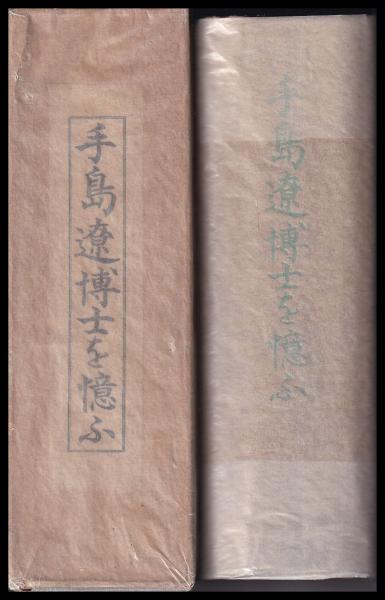 手島遼博士を憶ふ
手島遼博士を憶ふ